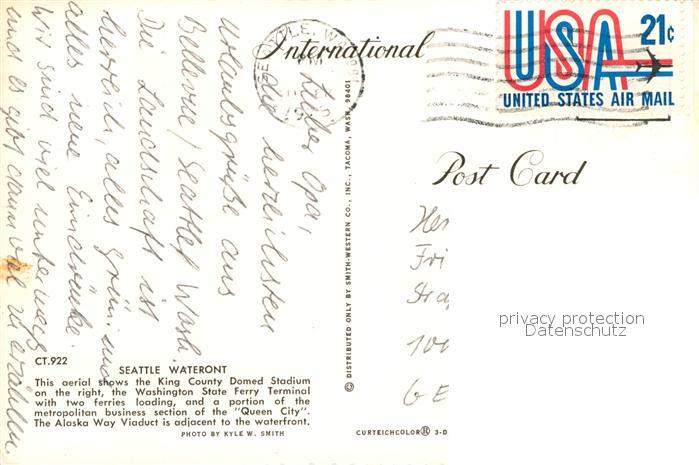 International
USA 21c
UNITED STATES AIR MAIL
Post Card
Lieber Opa,
die herzlichsten
Urlaubsgrüße aus
Bellevue/Seattle, Wash.
Die Landschaft ist
herrlich, alles grün und
alles neue Eindrücke.
Wir sind viel unterwegs
und es gibt dann viel zu erzählen.
Her
Fri
100
GE
privacy protection
Datenschutz
CT.922
SEATTLE WATERONT
This aerial shows the King County Domed Stadium
on the right, the Washington State Ferry Terminal
with two ferries loading, and a portion of the
metropolitan business section of the "Queen City".
The Alaska Way Viaduct is adjacent to the waterfront.
PHOTO BY KYLE W. SMITH
© DISTRIBUTED ONLY BY SMITH-WESTERN CO., INC., TACOMA, WASH. 98401
CURTEICHCOLOR® 3-D